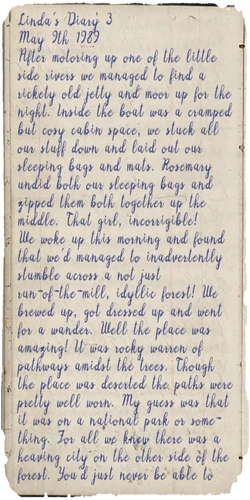 Linda's Diary 3
May 9th 1989
After motoring up one of the little
side rivers we managed to find a
rickety old jetty and moor up for the
night. Inside the boat was a cramped
but cosy cabin space, we stack all
our stuff down and laid out our
sleeping bags and mats. Rosemary
undid both our sleeping bags and
zipped them both together up the
middle. That girl, incorrigible!
We woke up this morning and found
that we'd managed to inadvertently
stumble across a not just
run-of-the-mill, idyllic forest! We
brewed up, got dressed up and went
for a wander. Well the place was
amazing! It was rocky warren of
pathways amidst the trees. Though
the place was deserted the paths were
pretty well worn. My guess was that
it was on a national park or some-
thing. For all we knew there was a
heaving city on the other side of the
forest. You'd just never be able to